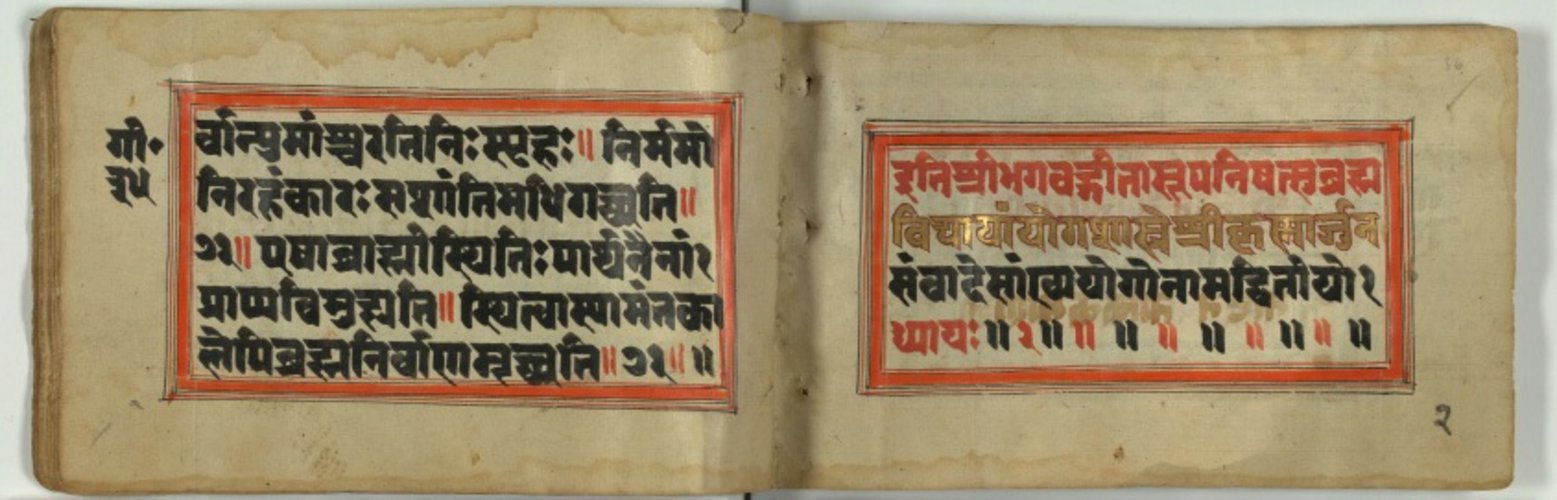 गी॰
३५
र्वान्पुमांश्चरतिनिःस्पृहः॥ निर्ममो
निरहंकारः सशांतिमधिगच्छति॥
७१॥ एषाब्राह्मीस्थितिःपार्थनैनां२
प्राप्यविमुह्यति॥ स्थित्वास्यामंतका
लेपिब्रह्मनिर्वाणमृच्छति॥ ७२॥ ॥
इतिश्रीभगवद्गीतासूपनिषत्सुब्रह्म
विद्यायांयोगशास्त्रेश्रीकृस्मार्जुन
संवादेसांख्ययोगोनामद्वितीयो२
ध्यायः॥ २॥ ॥ ॥ ॥ ॥ ॥ ॥ ॥ ॥
२